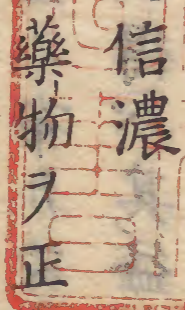 信濃
藥物ヲ正